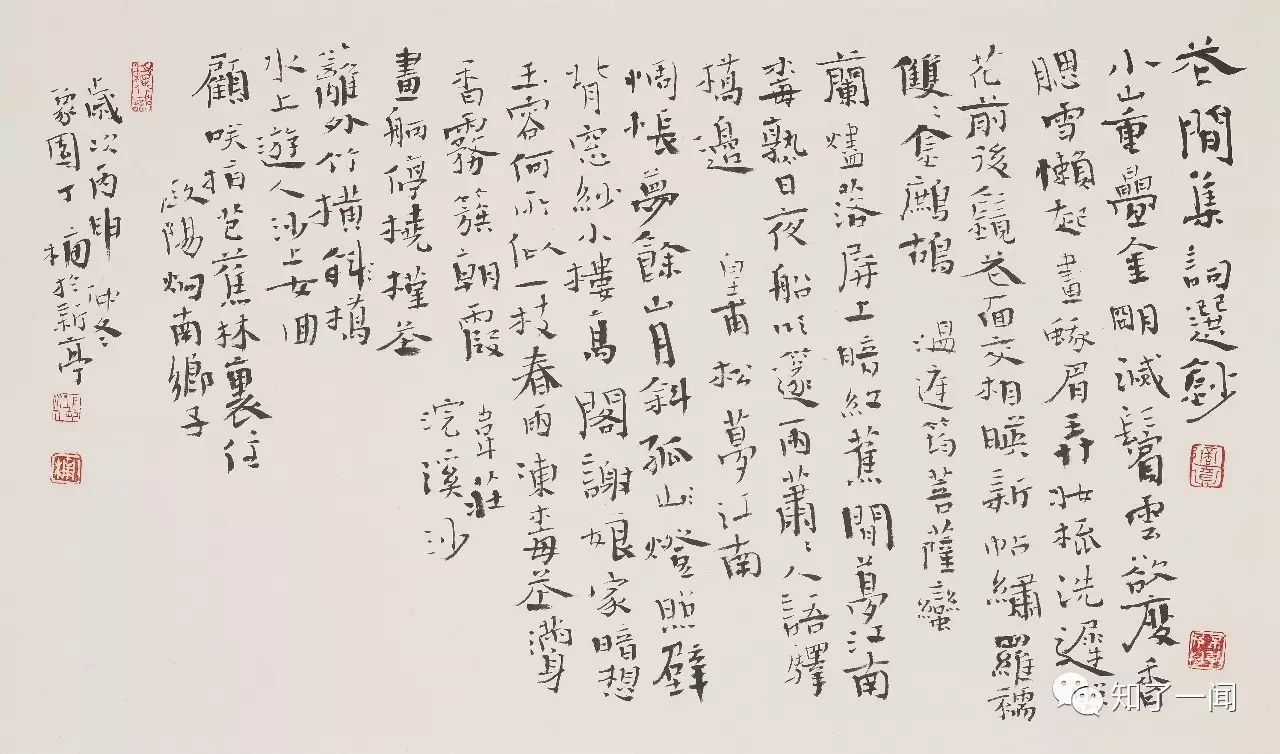 花間集詞選鈔
小山重疊金明滅鬢雲欲度香
腮雪懶起畫蛾眉弄妝梳洗遲照
花前後鏡花面交相暎新帖繡羅襦
雙雙金鷓鴣 溫庭筠菩薩蠻
蘭燼落屏上暗紅蕉閒夢江南
梅熟日夜船吹篴雨蕭蕭人語驛
橋邊 皇甫松夢江南
惆悵夢餘山月斜孤山燈照壁
背窗紗小樓高閣謝娘家暗想
玉容何所似一枝春雨凍梅花滿身
香霧簇朝霞 韋莊
浣溪沙
畫舸停橈槿花
籬外竹橫斜橋
水上遊人沙上女回
顧咲指芭蕉林裏住
歐陽炯南鄉子
歲次丙申仲冬
豫園丁楠於新亭
知了一闻